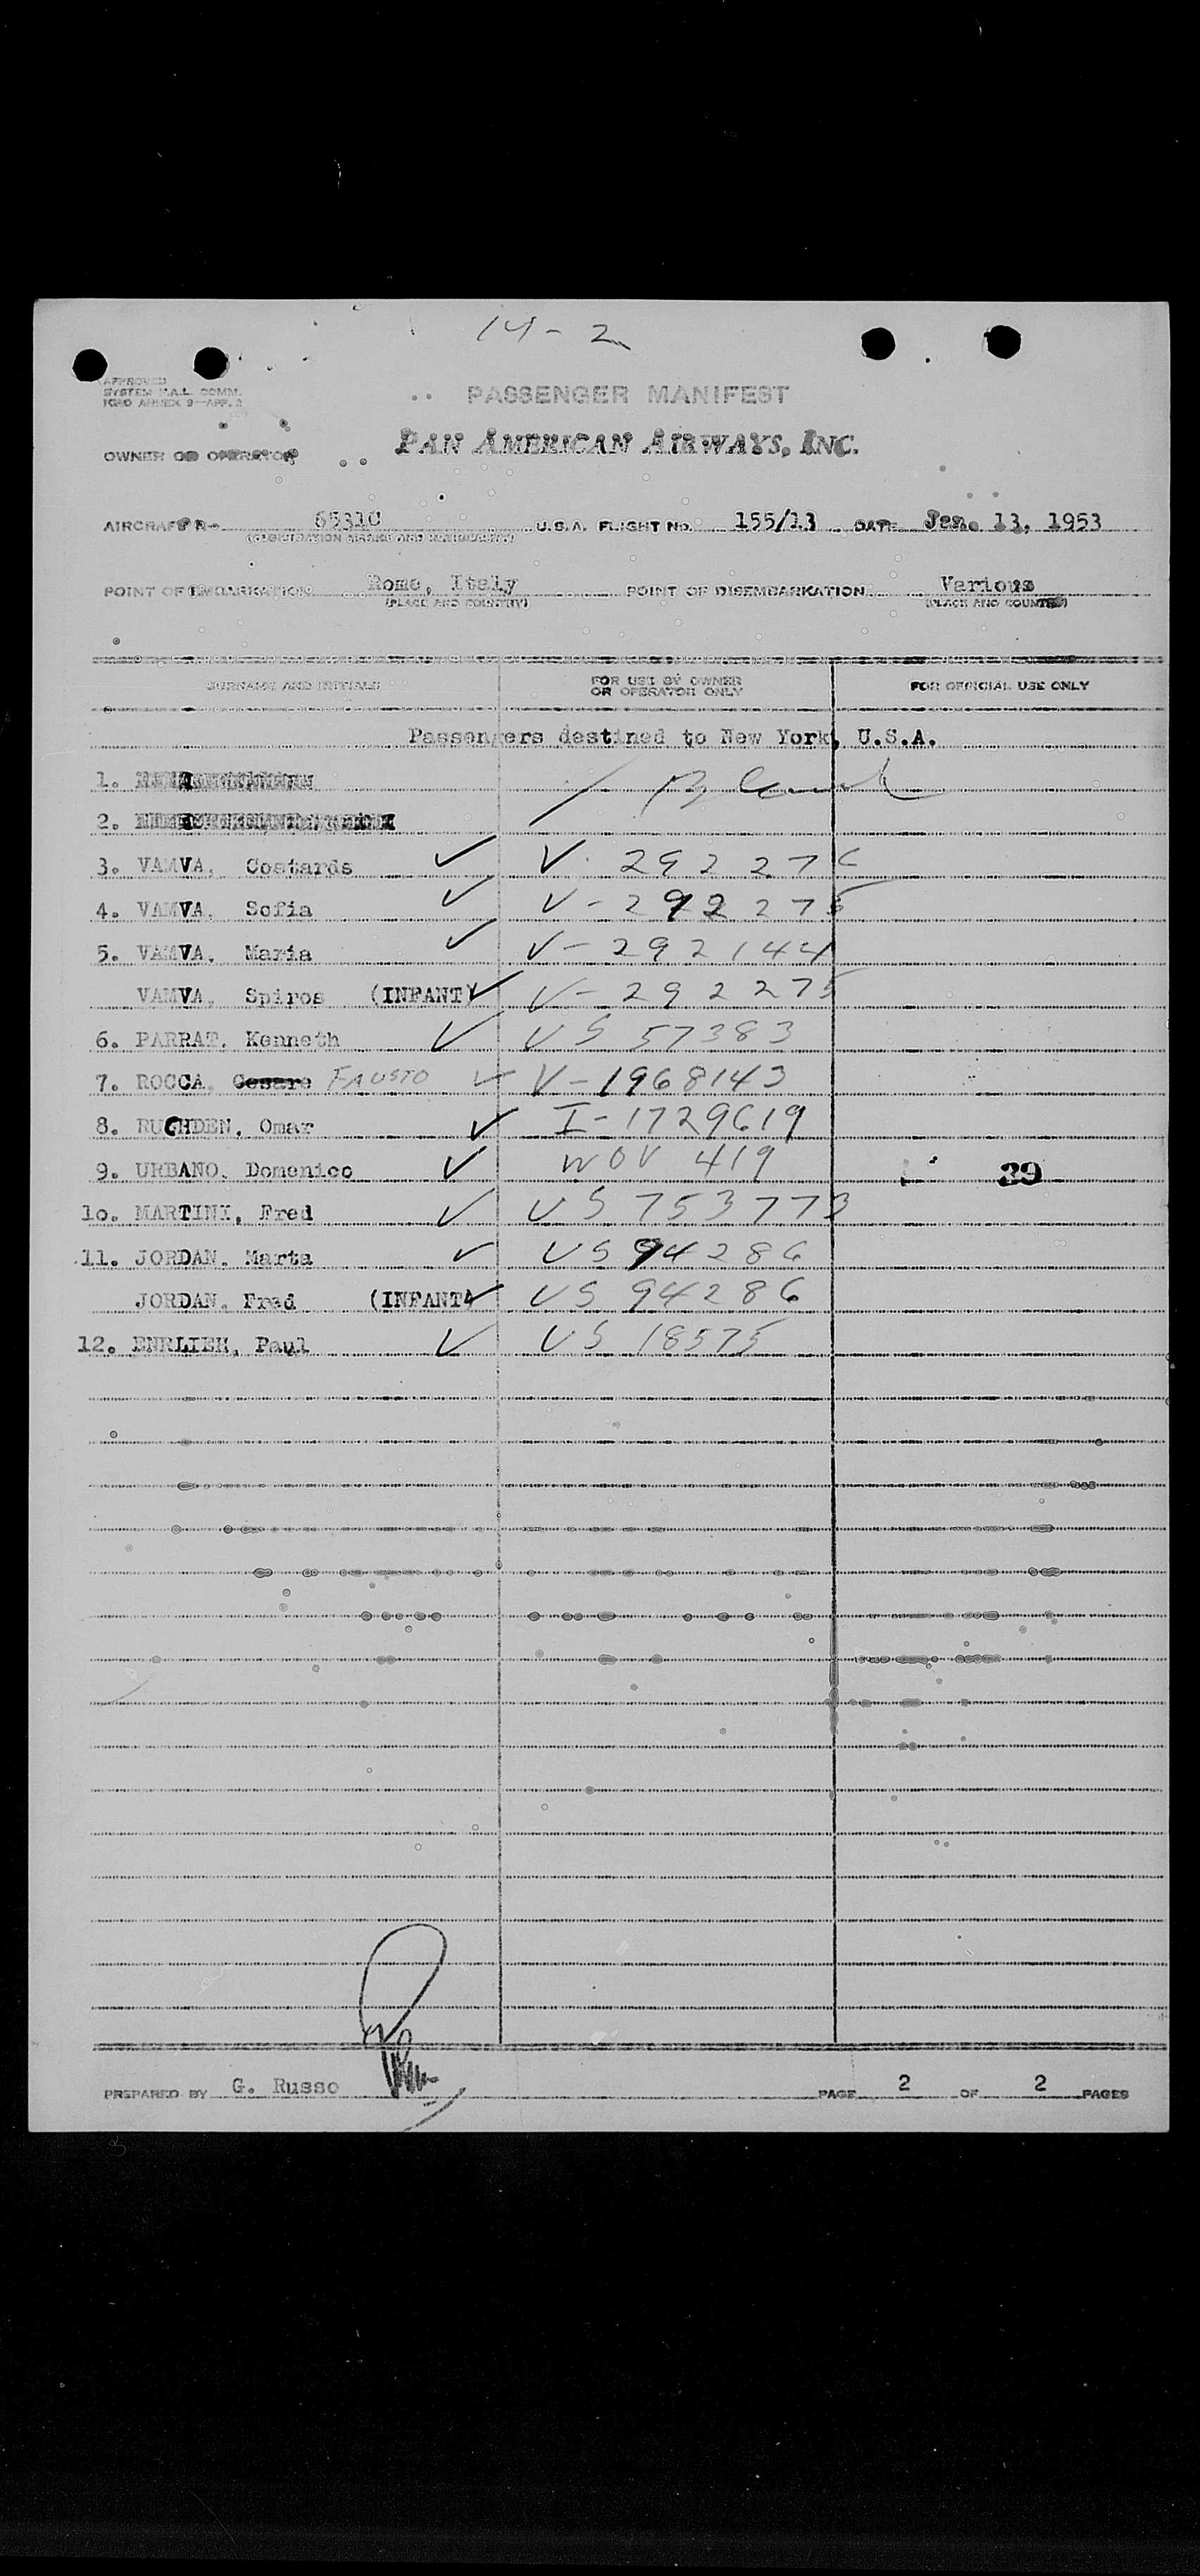 14-2
APPROVED
SYSTEM F.A.L. COMM.
ICAO ANNEX 9—APP. 2
PASSENGER MANIFEST
OWNER OR OPERATOR PAN AMERICAN AIRWAYS, INC.
AIRCRAFT N- 6531C U.S.A. FLIGHT No. 155/13 DATE Jan. 13, 1953
(REGISTRATION MARKS AND NATIONALITY)
POINT OF EMBARKATION Rome, Italy POINT OF DISEMBARKATION Various
(PLACE AND COUNTRY) (PLACE AND COUNTRY)
SURNAME AND INITIALS FOR USE BY OWNER OR OPERATOR ONLY FOR OFFICIAL USE ONLY
Passengers destined to New York, U.S.A.
1.
2.
3. VAMVA, Costards ✓ V. 292276
4. VAMVA, Sofia ✓ V-292275
5. VAMVA, Maria ✓ V-292144
VAMVA, Spiros (INFANT) ✓ V-292275
6. PARRAT, Kenneth ✓ US 57383
7. ROCCA, Cesare FAUSTO ✓ V-1968143
8. RUCHDEN, Omar ✓ I-1729619
9. URBANO, Domenico ✓ WOV 419 39
10. MARTINI, Fred ✓ US 753773
11. JORDAN, Marta ✓ US 94286
JORDAN, Fred (INFANT) ✓ US 94286
12. ENRLIEH, Paul ✓ US 18575
PREPARED BY G. Russo PAGE 2 OF 2 PAGES